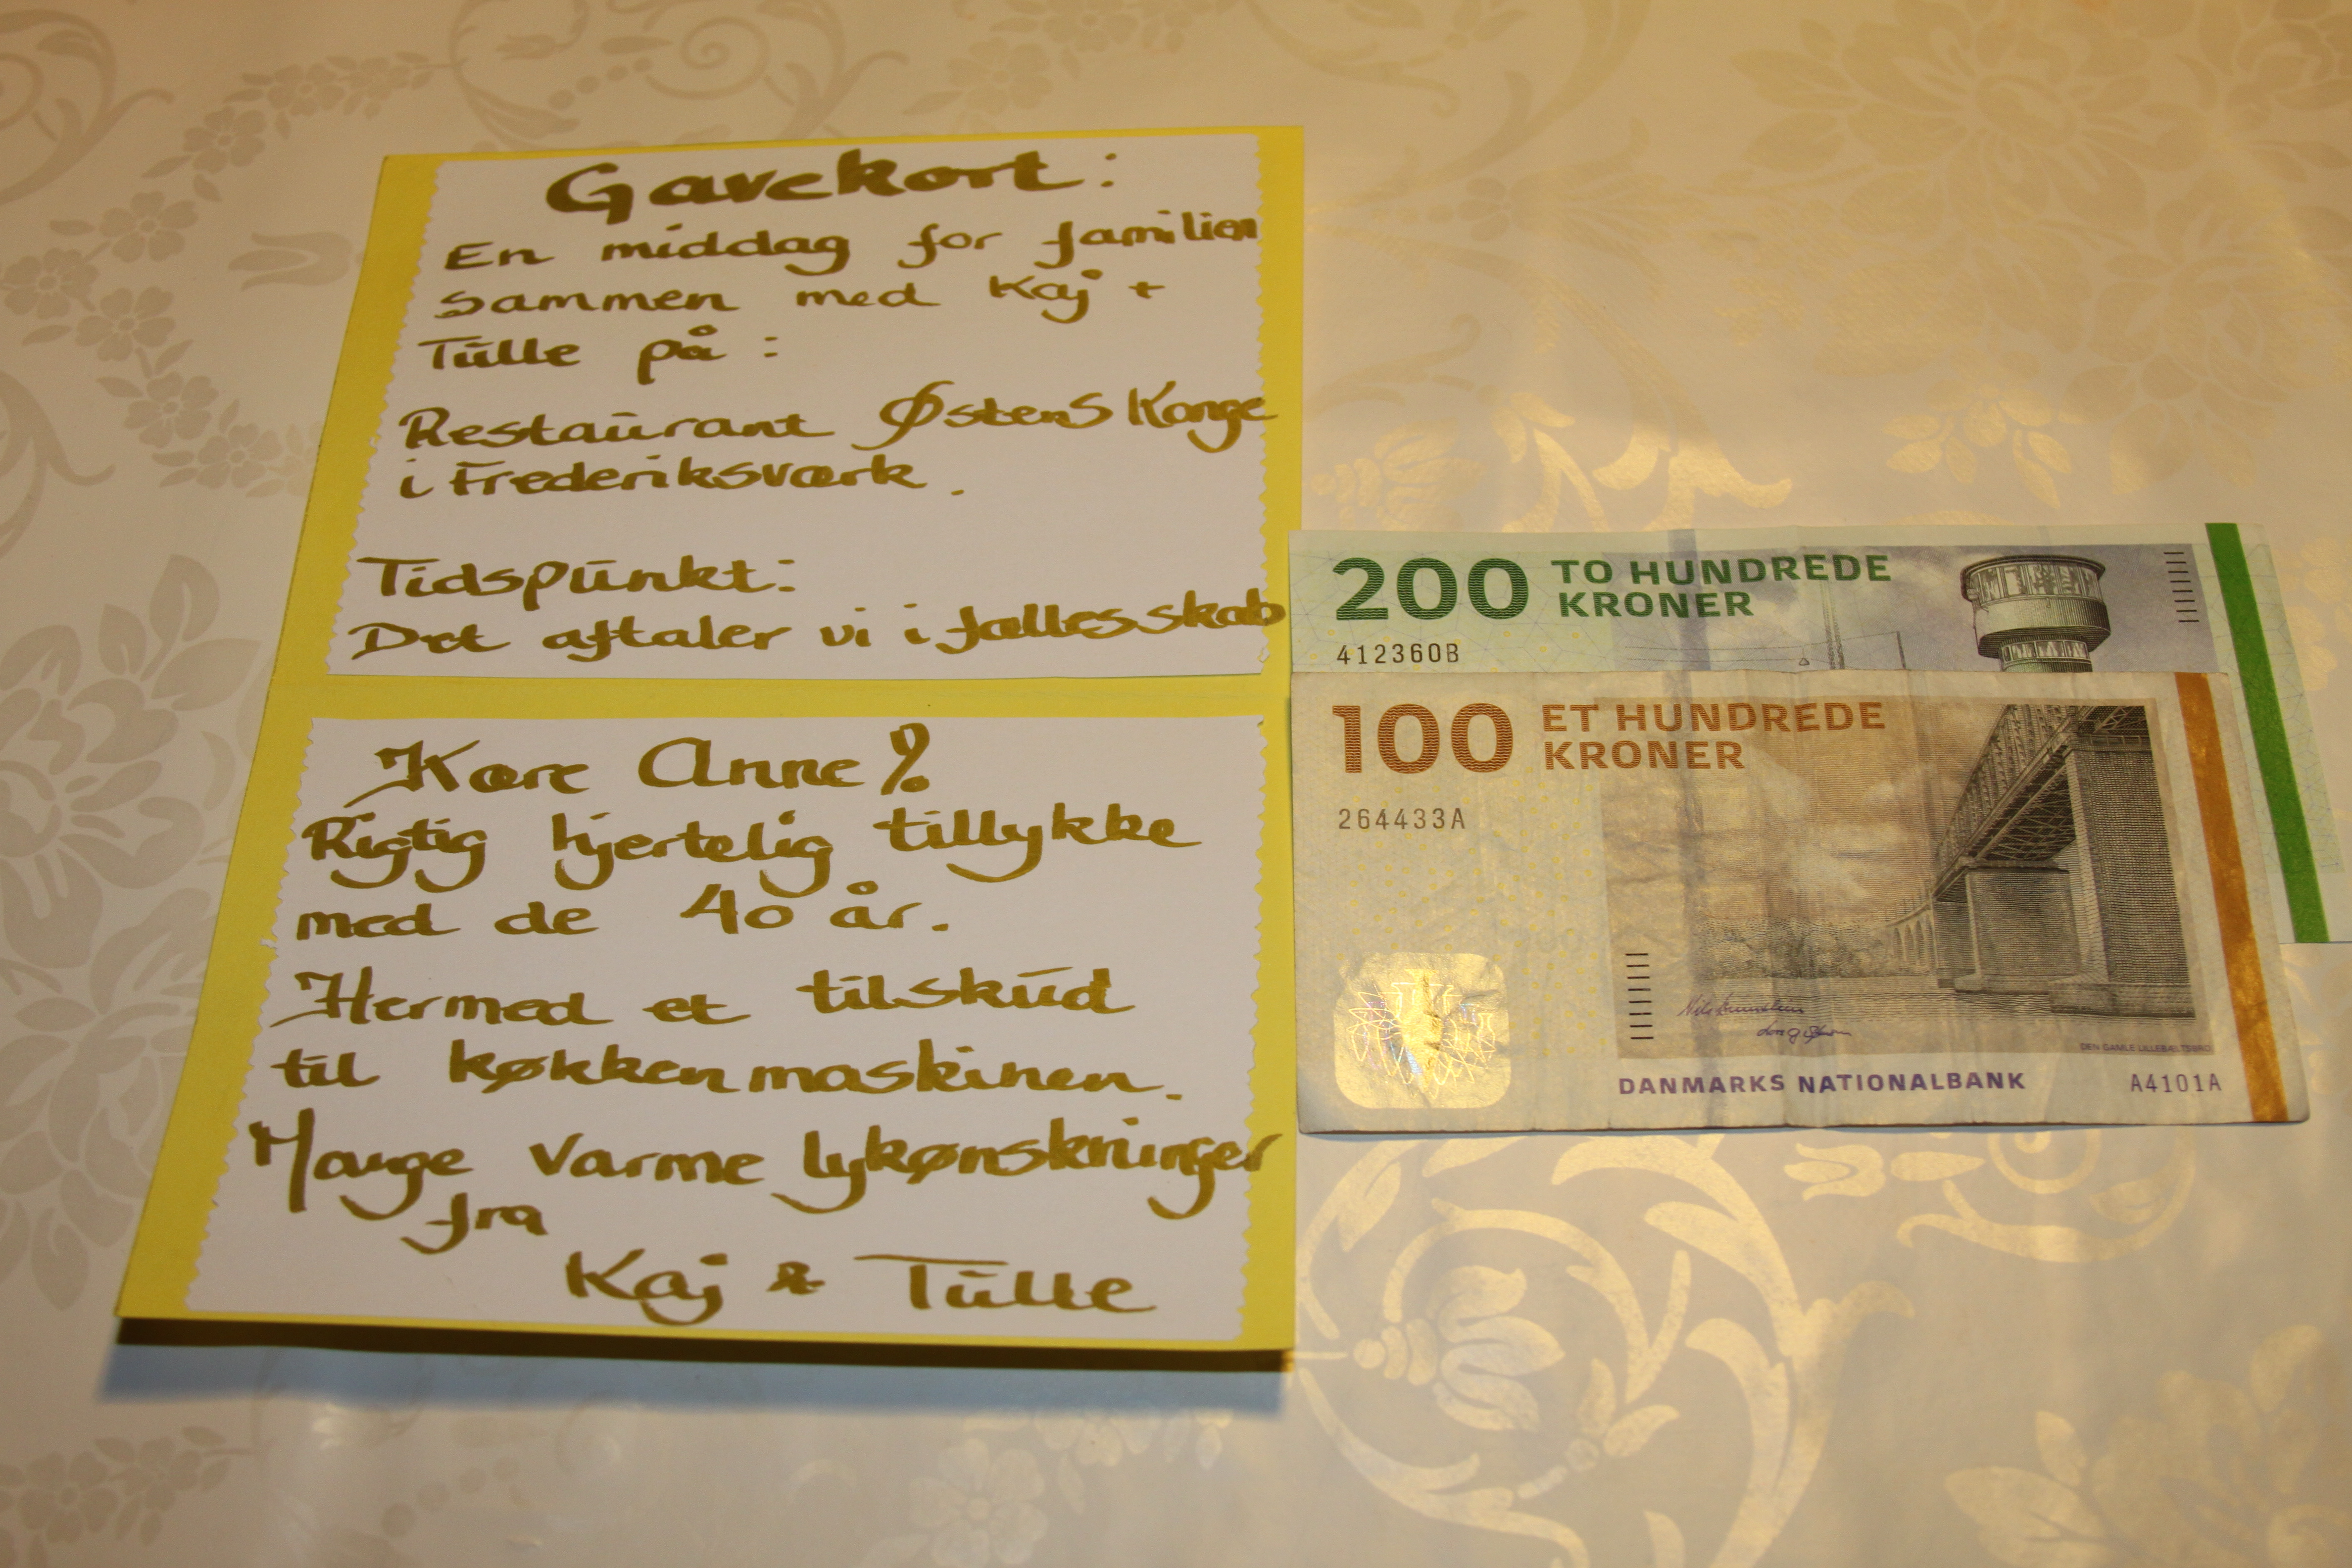 Gavekort:
En middag for familien
sammen med Kaj +
Tulle på:
Restaurant Østens Konge
i Frederiksværk.
Tidspunkt:
Det aftaler vi i fællesskab
Kære Anne!
Rigtig hjertelig tillykke
med de 40 år.
Hermed et tilskud
til køkkenmaskinen.
Mange varme lykønskninger
fra
Kaj & Tulle
200 TO HUNDREDE
KRONER
412360B
100 ET HUNDREDE
KRONER
264433A
DEN GAMLE LILLEBÆLTSBRO
DANMARKS NATIONALBANK A4101A